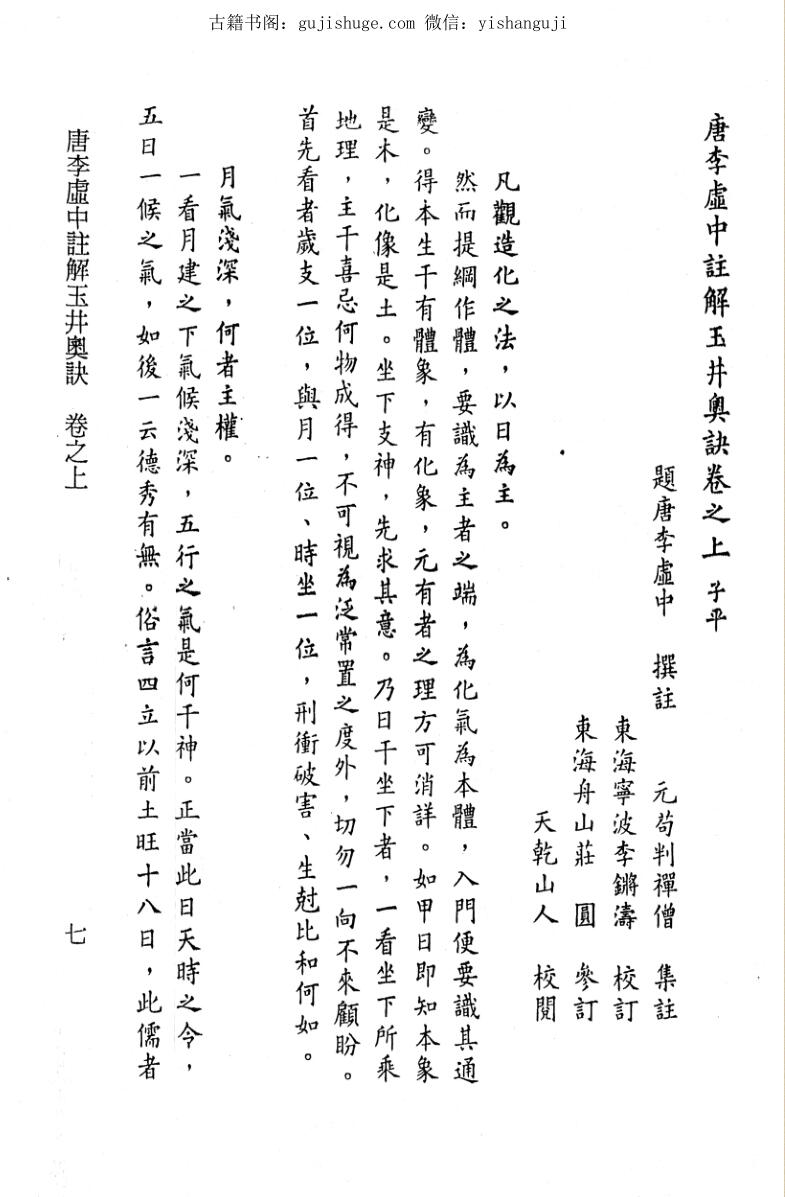 古籍书阁：gujishuge.com 微信：yishanguji
唐李虛中註解玉井奧訣卷之上 子平
題唐李虛中 撰註 元苟判禪僧 集註
東海寧波李鏘濤 校訂
東海舟山莊 圓 參訂
天乾山人 校閱
凡觀造化之法，以日為主。
然而提綱作體，要識為主者之端，為化氣為本體，入門便要識其通
變。得本生干有體象，有化象，元有者之理方可消詳。如甲日即知本象
是木，化像是土。坐下支神，先求其意。乃日干坐下者，一看坐下所乘
地理，主干喜忌何物成得，不可視為泛常置之度外，切勿一向不來顧盼。
首先看者歲支一位，與月一位、時坐一位，刑衝破害、生尅比和何如。
月氣淺深，何者主權。
一看月建之下氣候淺深，五行之氣是何干神。正當此日天時之令，
五日一候之氣，如後一云德秀有無。俗言四立以前土旺十八日，此儒者
唐李虛中註解玉井奧訣 卷之上
七